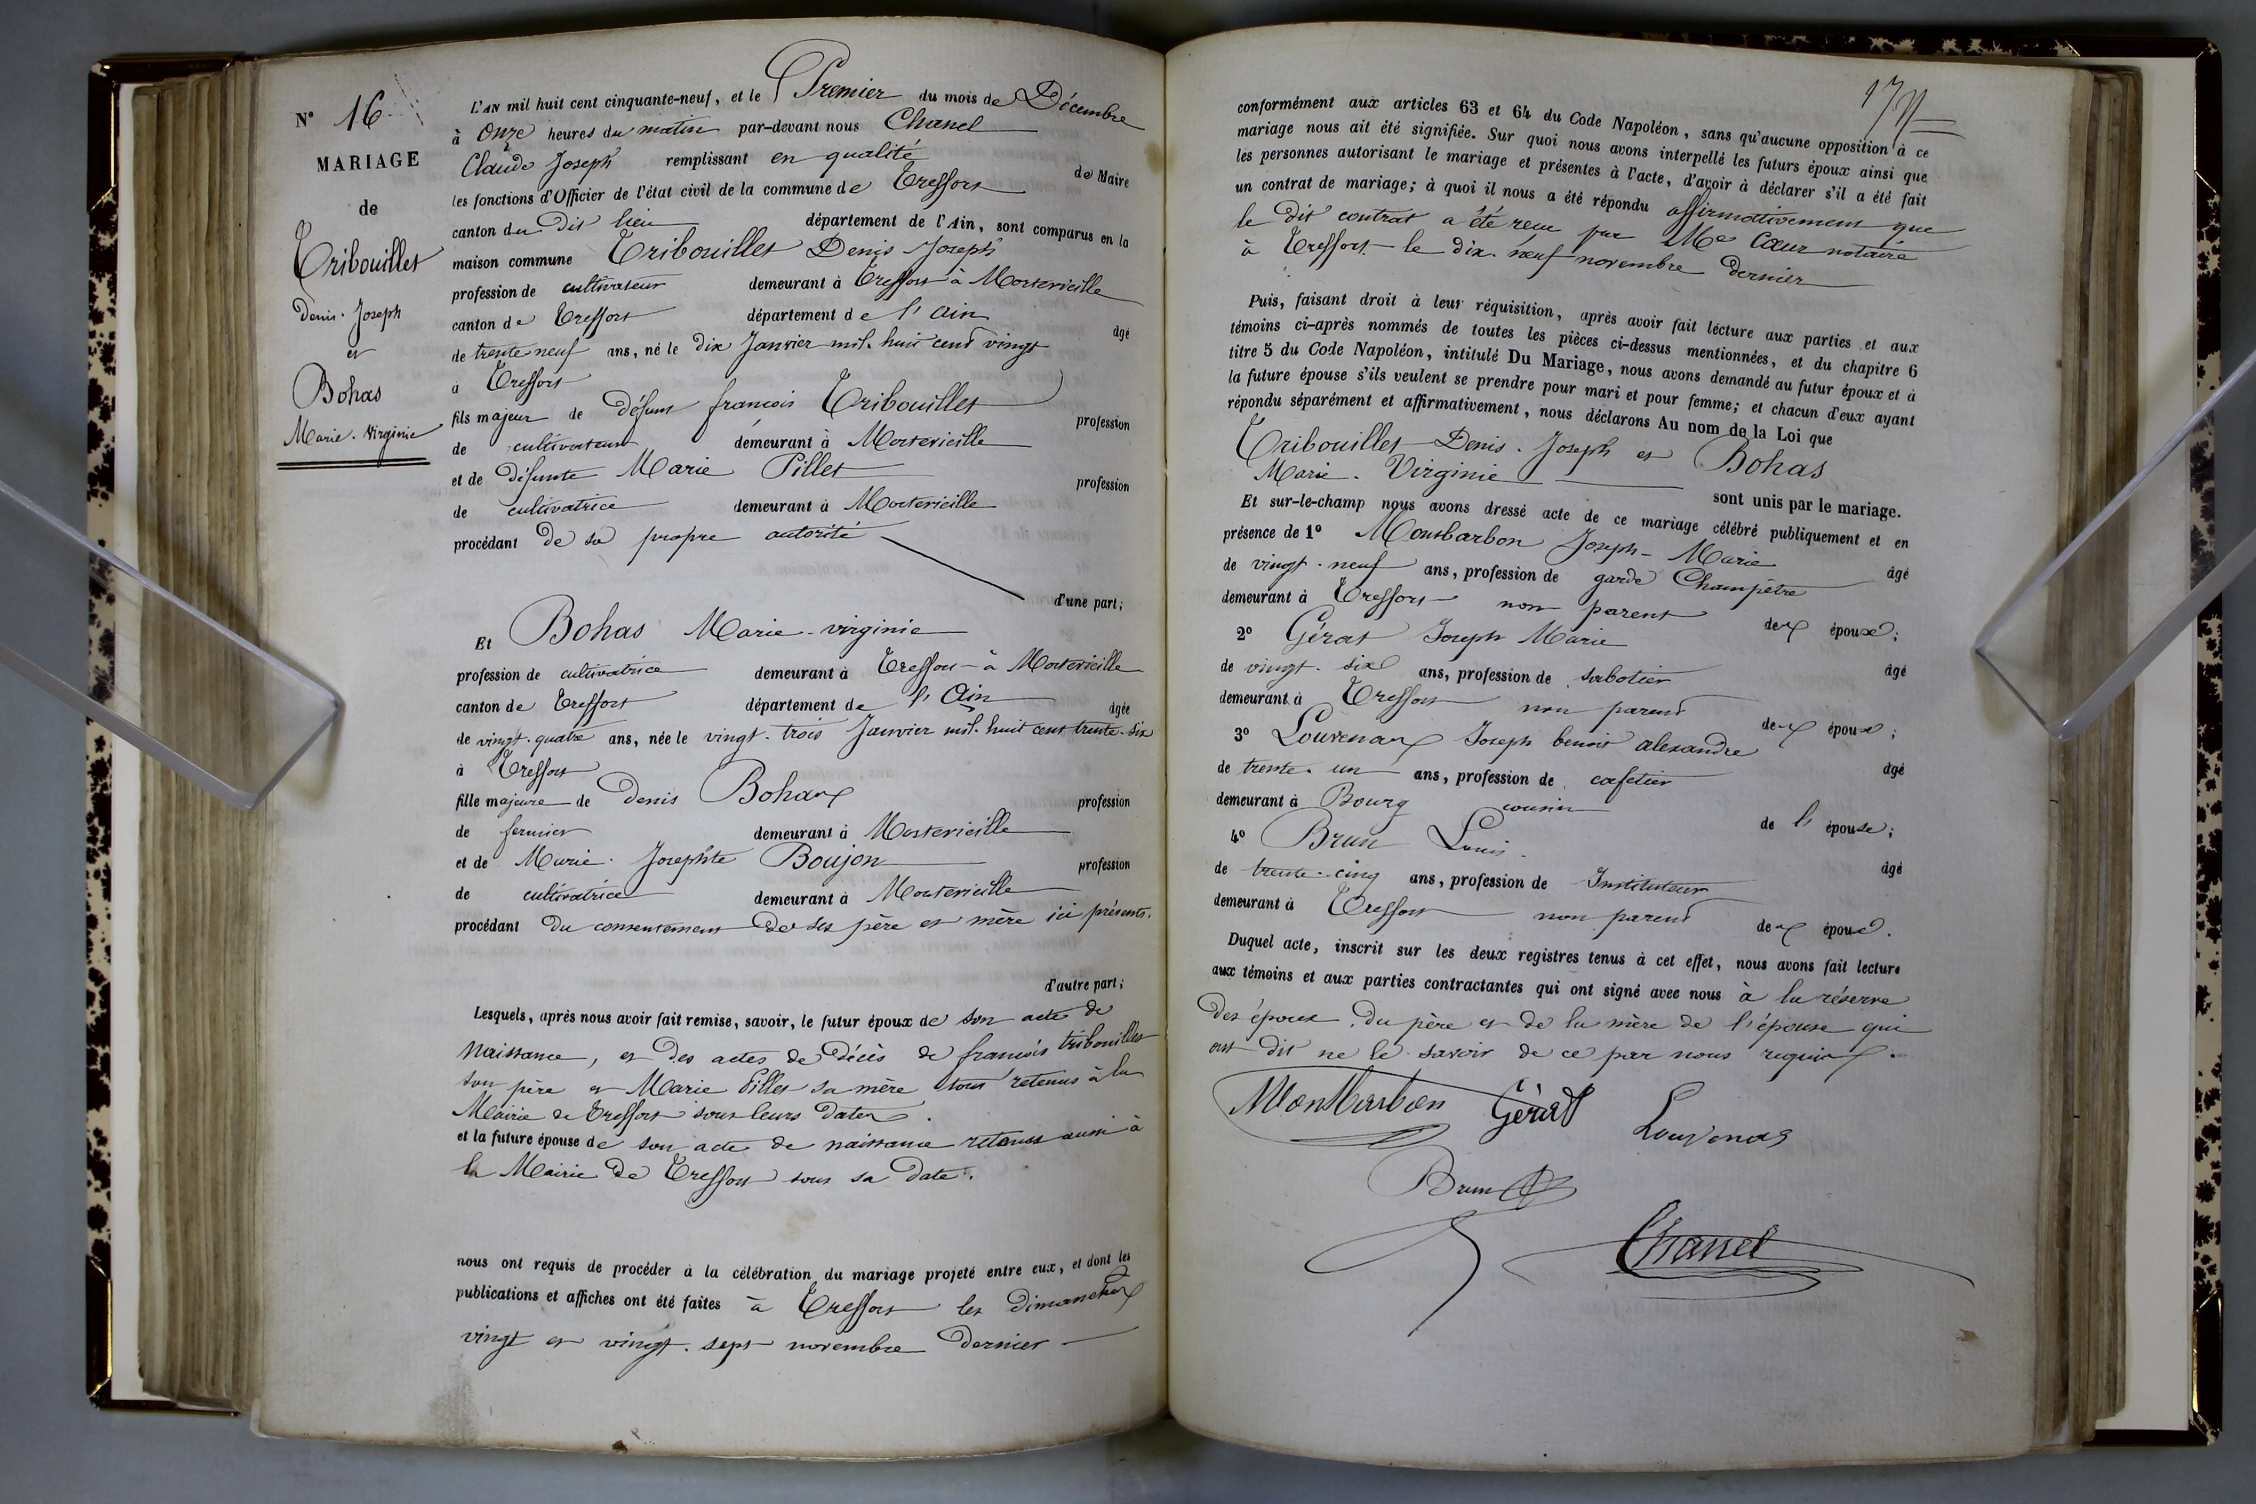 N° 16
MARIAGE
de
Tribouillet
Denis. Joseph
et
Bohas
Marie. Virginie
L'AN mil huit cent cinquante-neuf, et le Premier du mois de Décembre
à onze heures du matin par-devant nous Chanel
Claude Joseph remplissant en qualité de Maire
les fonctions d'Officier de l'état civil de la commune de Treffort
canton du dit lieu département de l'Ain, sont comparus en la
maison commune Tribouillet Denis Joseph
profession de cultivateur demeurant à Treffort à Montevieille
canton de Treffort département de l'ain âgé
de trente neuf ans, né le dix Janvier mil. huit cent vingt
à Treffort
fils majeur de défunt francois Tribouillet profession
de cultivateur demeurant à Montevieille
et de défunte Marie Pillet profession
de cultivatrice demeurant à Montevieille
procédant de sa propre autorité
d'une part;
Et Bohas Marie-virginie
profession de cultivatrice demeurant à Treffort à Montevieille
canton de Treffort département de l'Ain âgée
de vingt. quatre ans, née le vingt. trois Janvier mil. huit cent trente. six
à Treffort
fille majeure de Denis Bohas profession
de fermier demeurant à Montevieille
et de Marie. Josephte Boujon profession
de cultivatrice demeurant à Montevieille
procédant du consentement de ses père et mère ici présents.
d'autre part;
Lesquels, après nous avoir fait remise, savoir, le futur époux de son acte de
naissance, et des actes de décès de francois tribouillet
son père et Marie Pillet sa mère tous retenus à la
Mairie de Treffort sous leurs dates.
et la future épouse de son acte de naissance retenu aussi à
la Mairie de Treffort sous sa date.
nous ont requis de procéder à la célébration du mariage projeté entre eux, et dont les
publications et affiches ont été faites à Treffort les dimanches
vingt et vingt. sept novembre dernier
conformément aux articles 63 et 64 du Code Napoléon, sans qu'aucune opposition à ce
mariage nous ait été signifiée. Sur quoi nous avons interpellé les futurs époux ainsi que
les personnes autorisant le mariage et présentes à l'acte, d'avoir à déclarer s'il a été fait
un contrat de mariage; à quoi il nous a été répondu affirmativement que
le dit contrat a été recu par Me Cœur notaire
à Treffort le dix. neuf novembre dernier
Puis, faisant droit à leur réquisition, après avoir fait lecture aux parties et aux
témoins ci-après nommés de toutes les pièces ci-dessus mentionnées, et du chapitre 6
titre 5 du Code Napoléon, intitulé Du Mariage, nous avons demandé au futur époux et à
la future épouse s'ils veulent se prendre pour mari et pour femme; et chacun d'eux ayant
répondu séparément et affirmativement, nous déclarons Au nom de la Loi que
Tribouillet Denis. Joseph et Bohas
Marie. Virginie sont unis par le mariage.
Et sur-le-champ nous avons dressé acte de ce mariage célébré publiquement et en
présence de 1° Montbarbon Joseph-Marie âgé
de vingt. neuf ans, profession de garde Champêtre
demeurant à Treffort non parent des époux;
2° Gérat Joseph Marie âgé
de vingt. six ans, profession de sabotier
demeurant à Treffort non parent des époux;
3° Louvenas Joseph benoit alexandre âgé
de trente. un ans, profession de cafetier
demeurant à Bourg cousin de l'épouse;
4° Brun Louis. âgé
de trente. cinq ans, profession de Instituteur
demeurant à Treffort non parent des époux.
Duquel acte, inscrit sur les deux registres tenus à cet effet, nous avons fait lecture
aux témoins et aux parties contractantes qui ont signé avec nous à la réserve
des époux, du père et de la mère de l'épouse qui
ont dit ne le savoir de ce par nous requis.
Montbarbon Gérat Louvenas
Brun
Chanel